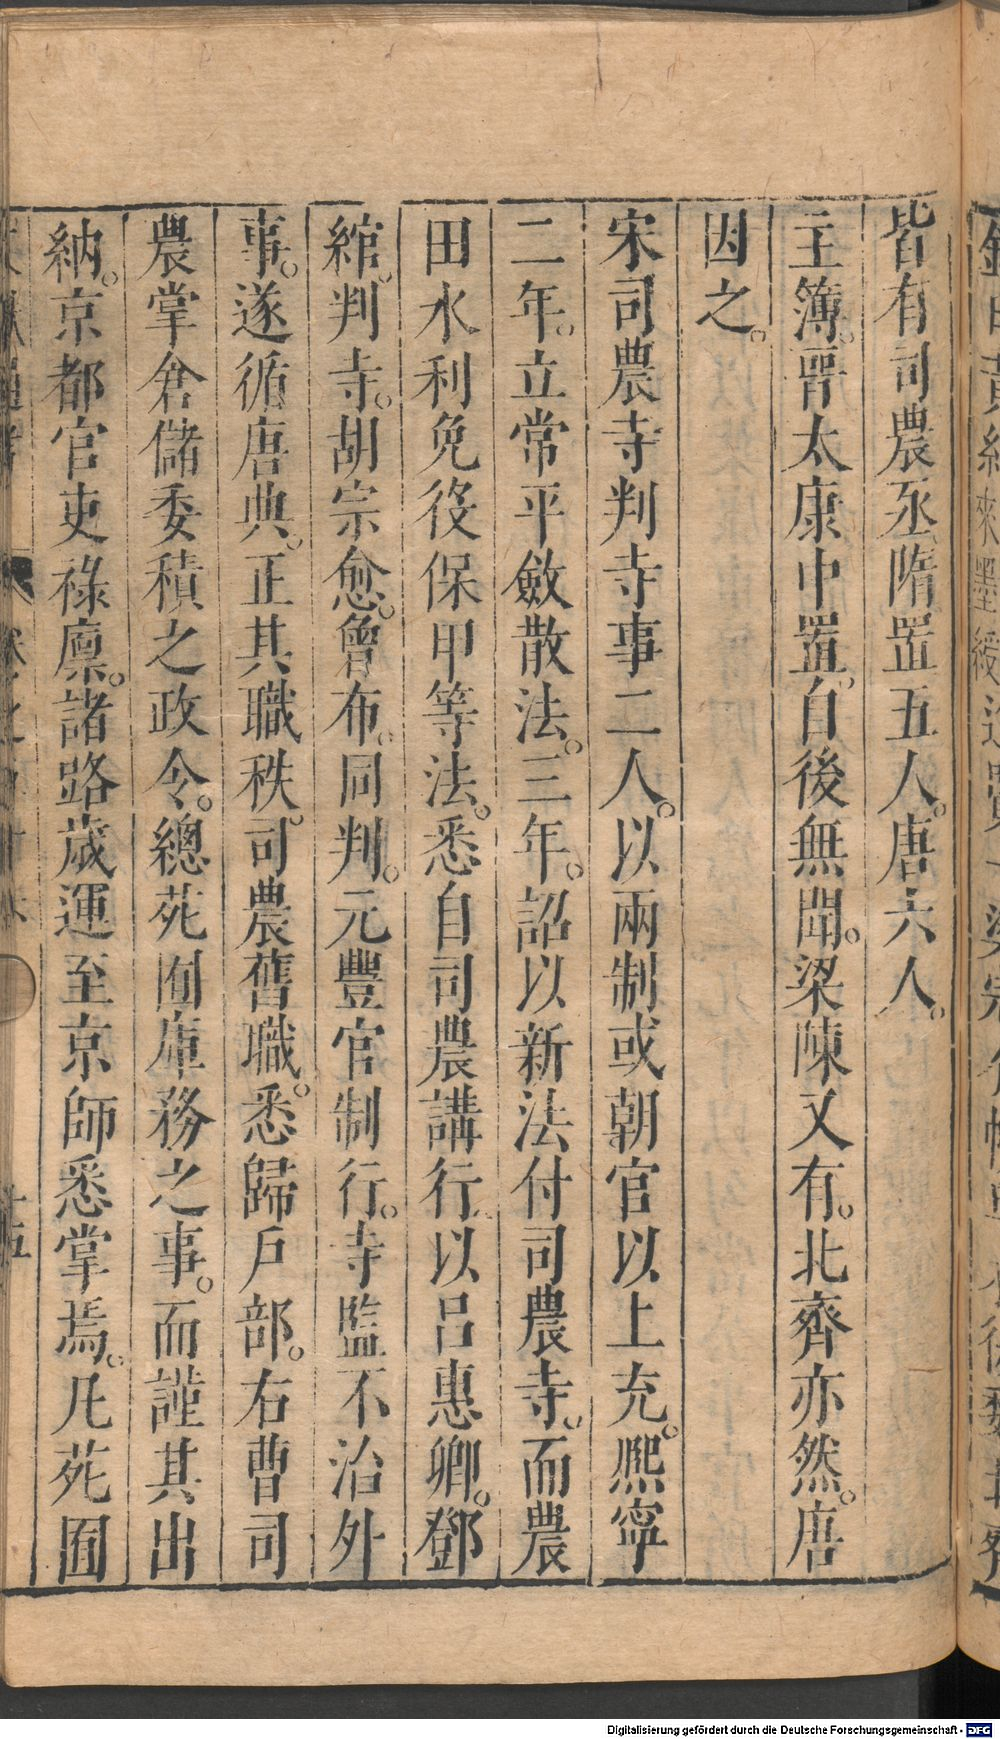 皆有司農丞隋置五人。唐六人。
主簿。晉太康中置。自後無聞。梁陳又有。北齊亦然。唐
因之。
宋司農寺判寺事二人。以兩制或朝官以上充。熈寧
二年。立常平斂散法。三年。詔以新法付司農寺。而農
田水利免役保甲等法。悉自司農講行。以呂惠卿。鄧
綰。判寺。胡宗愈。曾布。同判。元豐官制行。寺監不治外
事。遂循唐典。正其職秩。司農舊職。悉歸戶部。右曹司
農掌倉儲委積之政令。總苑囿庫務之事。而謹其出
納。京都官吏祿廩。諸路歲運至京師悉掌焉。凡苑囿
十五
Digitalisierung gefördert durch die Deutsche Forschungsgemeinschaft - DFG